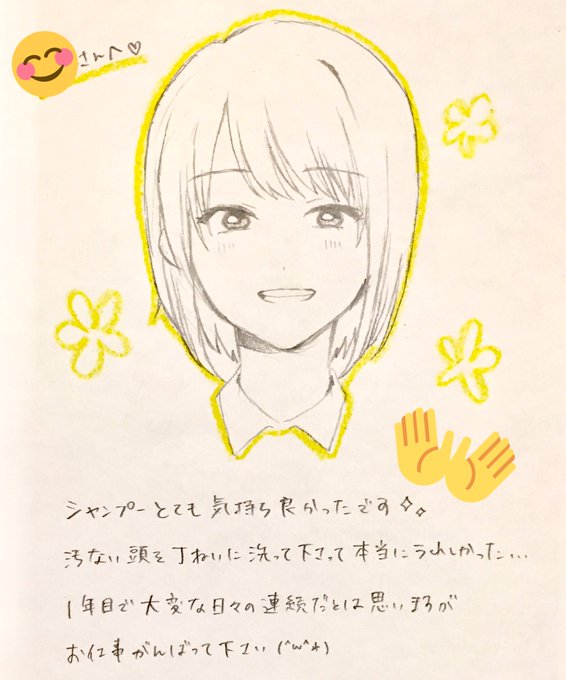 さんへ♡
シャンプーとても気持ち良かったです✧˖
汚ない頭を丁ねいに洗って下さって本当にうれしかった...
1年目で大変な日々の連続だとは思いますが
お仕事がんばって下さい(^w^*)